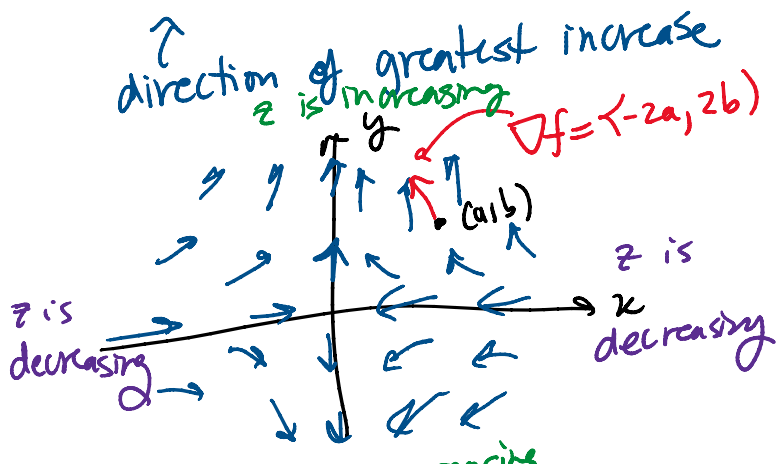 direction of greatest increase
z is increasing
y
∇f = ⟨-2a, 2b⟩
(a,b)
z is
decreasing
x
z is
decreasing